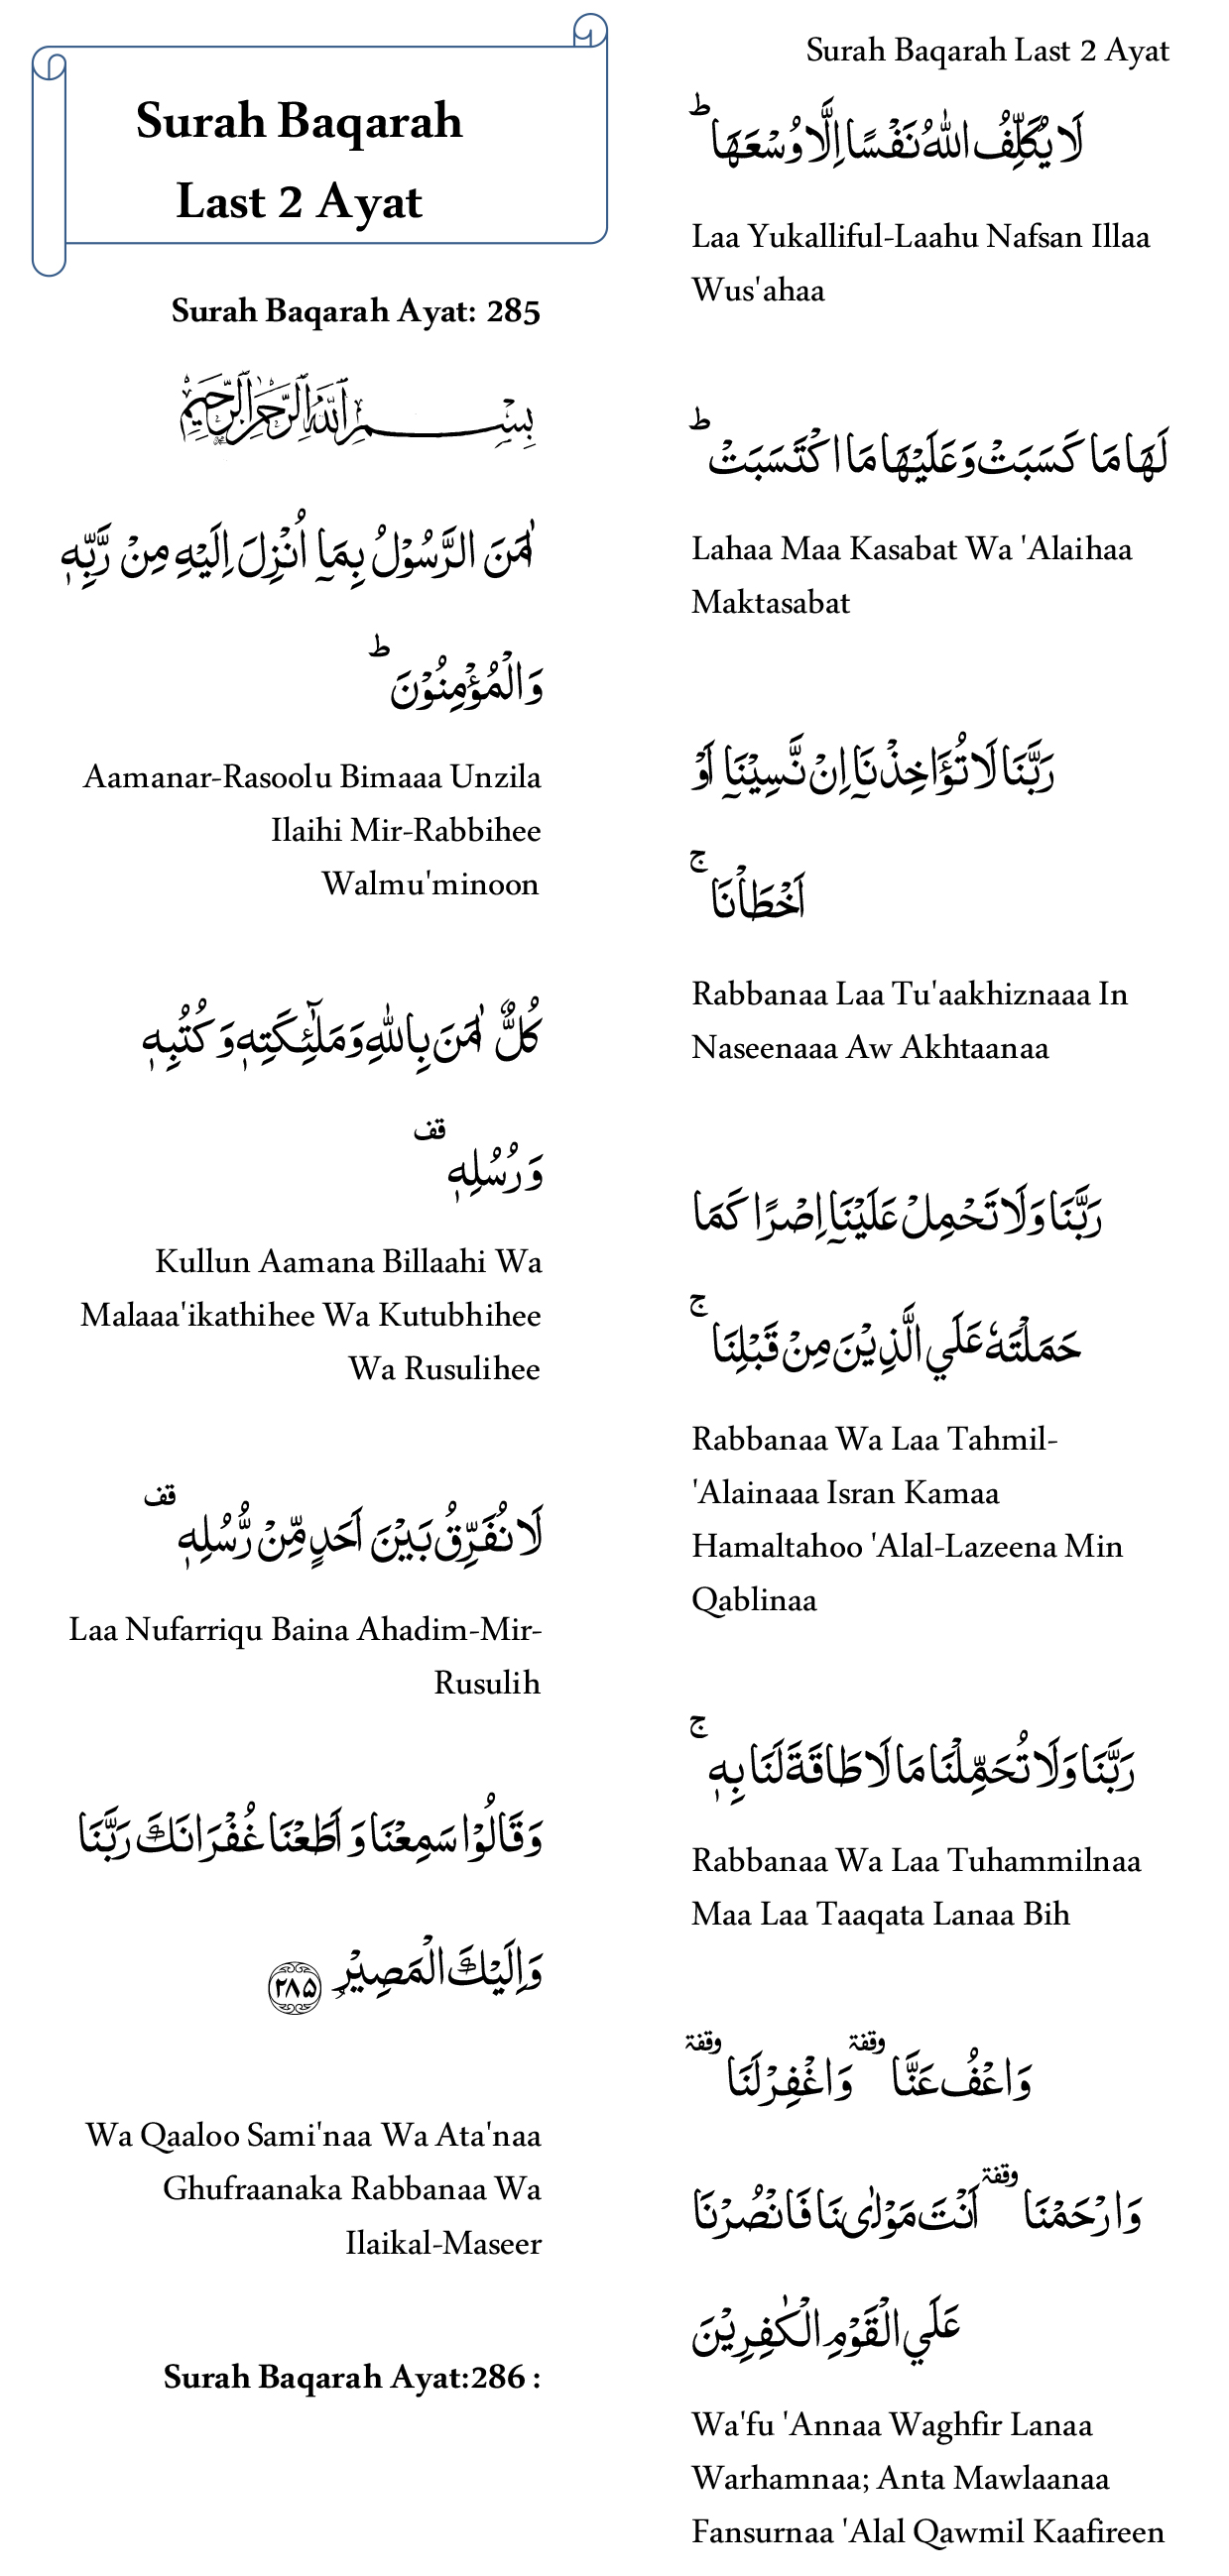 Surah Baqarah
Last 2 Ayat
Surah Baqarah Ayat: 285
بِسْمِ اللّٰهِ الرَّحْمٰنِ الرَّحِيْمِ
اٰمَنَ الرَّسُوْلُ بِمَاۤ اُنْزِلَ اِلَيْهِ مِنْ رَّبِّهٖ
وَالْمُؤْمِنُوْنَ ؕ
Aamanar-Rasoolu Bimaaa Unzila
Ilaihi Mir-Rabbihee
Walmu'minoon
كُلٌّ اٰمَنَ بِاللّٰهِ وَمَلٰٓئِكَتِهٖ وَكُتُبِهٖ
وَرُسُلِهٖ قف
Kullun Aamana Billaahi Wa
Malaaa'ikathihee Wa Kutubhihee
Wa Rusulihee
لَا نُفَرِّقُ بَيْنَ اَحَدٍ مِّنْ رُّسُلِهٖ قف
Laa Nufarriqu Baina Ahadim-Mir-
Rusulih
وَقَالُوْا سَمِعْنَا وَ اَطَعْنَا غُفْرَانَكَ رَبَّنَا
وَاِلَيْكَ الْمَصِيْرُ ۲۸۵
Wa Qaaloo Sami'naa Wa Ata'naa
Ghufraanaka Rabbanaa Wa
Ilaikal-Maseer
Surah Baqarah Ayat:286 :
Surah Baqarah Last 2 Ayat
لَا يُكَلِّفُ اللّٰهُ نَفْسًا اِلَّا وُسْعَهَا ؕ
Laa Yukalliful-Laahu Nafsan Illaa
Wus'ahaa
لَهَا مَا كَسَبَتْ وَعَلَيْهَا مَا اكْتَسَبَتْ ؕ
Lahaa Maa Kasabat Wa 'Alaihaa
Maktasabat
رَبَّنَا لَا تُؤَاخِذْنَاۤ اِنْ نَّسِيْنَاۤ اَوْ
اَخْطَاْنَا ۚ
Rabbanaa Laa Tu'aakhiznaaa In
Naseenaaa Aw Akhtaanaa
رَبَّنَا وَلَا تَحْمِلْ عَلَيْنَاۤ اِصْرًا كَمَا
حَمَلْتَهٗ عَلَي الَّذِيْنَ مِنْ قَبْلِنَا ۚ
Rabbanaa Wa Laa Tahmil-
'Alainaaa Isran Kamaa
Hamaltahoo 'Alal-Lazeena Min
Qablinaa
رَبَّنَا وَلَا تُحَمِّلْنَا مَا لَا طَاقَةَ لَنَا بِهٖ ۚ
Rabbanaa Wa Laa Tuhammilnaa
Maa Laa Taaqata Lanaa Bih
وَاعْفُ عَنَّا وقفة وَاغْفِرْ لَنَا وقفة
وَارْحَمْنَا وقفة اَنْتَ مَوْلٰىنَا فَانْصُرْنَا
عَلَي الْقَوْمِ الْكٰفِرِيْنَ
Wa'fu 'Annaa Waghfir Lanaa
Warhamnaa; Anta Mawlaanaa
Fansurnaa 'Alal Qawmil Kaafireen